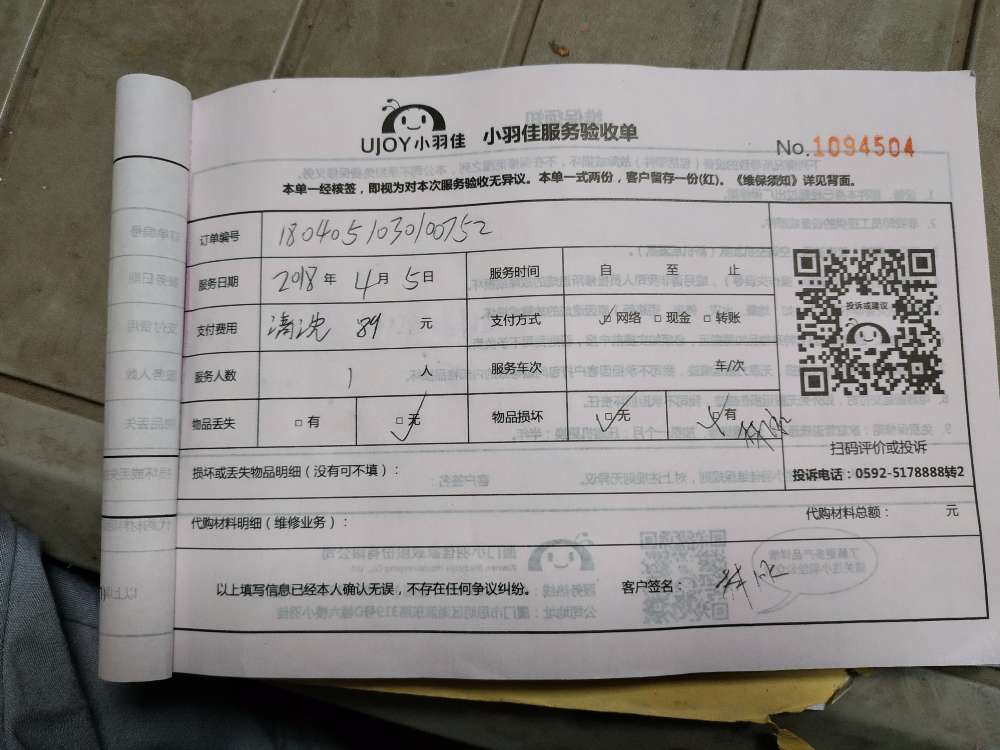 UJOY小羽佳 小羽佳服务验收单
No.1094504
本单一经核签，即视为对本次服务验收无异议。本单一式两份，客户留存一份(红)。《维保须知》详见背面。
订单编号 1804051030100752
服务日期 2018 年 4 月 5 日 服务时间 自 至 止
投诉或建议
支付费用 清洗 89 元 支付方式 ☑网络 □现金 □转账
服务人数 1 人 服务车次 车/次
物品丢失 □有 ☑无 物品损坏 ☑无 ☑有
扫码评价或投诉
投诉电话：0592-5178888转2
损坏或丢失物品明细（没有可不填）：
代购材料明细（维修业务）： 代购材料总额： 元
以上填写信息已经本人确认无误，不存在任何争议纠纷。 客户签名：